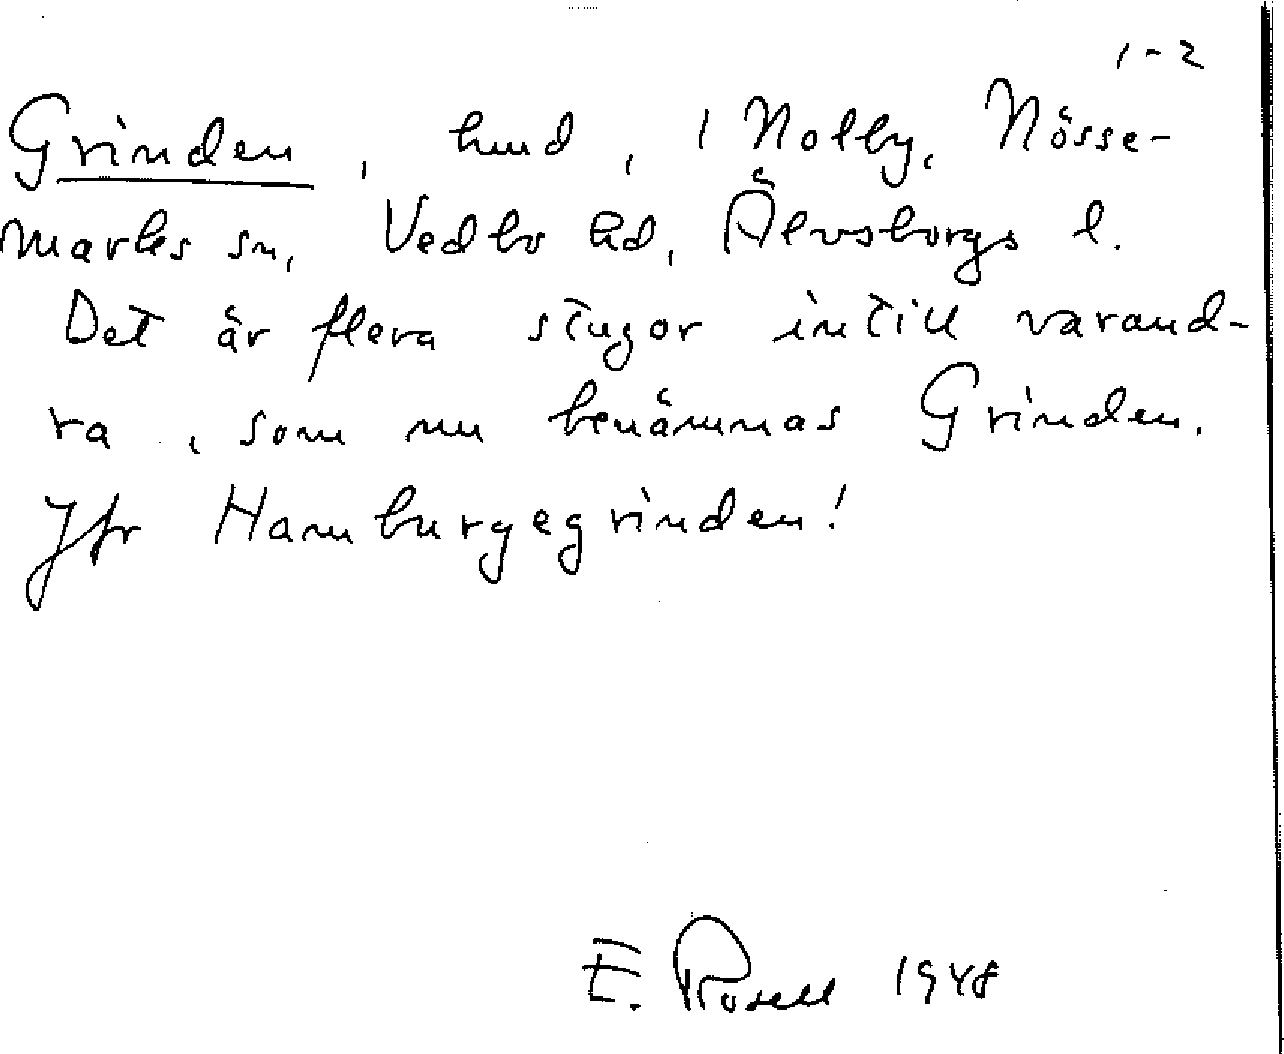 1-2
Grinden, hmd, 1 Nolby, Nösse-
marks sn, Vedbo hd, Älvsborgs l.
Det är flera stugor intill varand-
ra, som nu benämnas Grinden.
Jfr Hamburgegrinden!
E. Rosell 1948